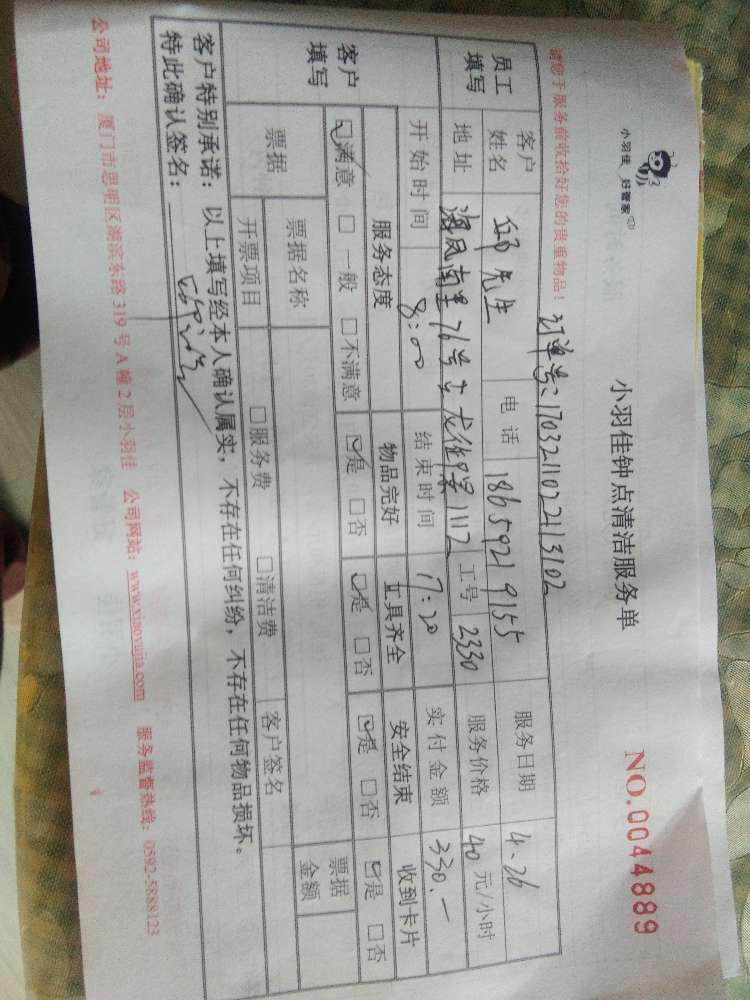 小羽佳 好管家
小羽佳钟点清洁服务单
NO.0044889
请您于服务前收拾好您的贵重物品!
订单号:1703211022113102
员工填写
客户姓名 邱先生 电话 18659219155 服务日期 4.26
地址 海凤南里76号 1112 工号 2330 服务价格 40元/小时
开始时间 8:00 结束时间 17:20 实付金额 330.—
客户填写
服务态度 物品完好 工具齐全 安全结束 收到卡片
☑满意 □一般 □不满意 ☑是 □否 ☑是 □否 ☑是 □否 ☑是 □否
票据 票据名称 票据金额
开票项目 □服务费 □清洁费 客户签名
客户特别承诺:以上填写经本人确认属实,不存在任何纠纷,不存在任何物品损坏。
特此确认签名:
公司地址:厦门市思明区湖滨东路319号A幢2层小羽佳 公司网站:www.xiaoyujia.com 服务监督热线:0592-5888123